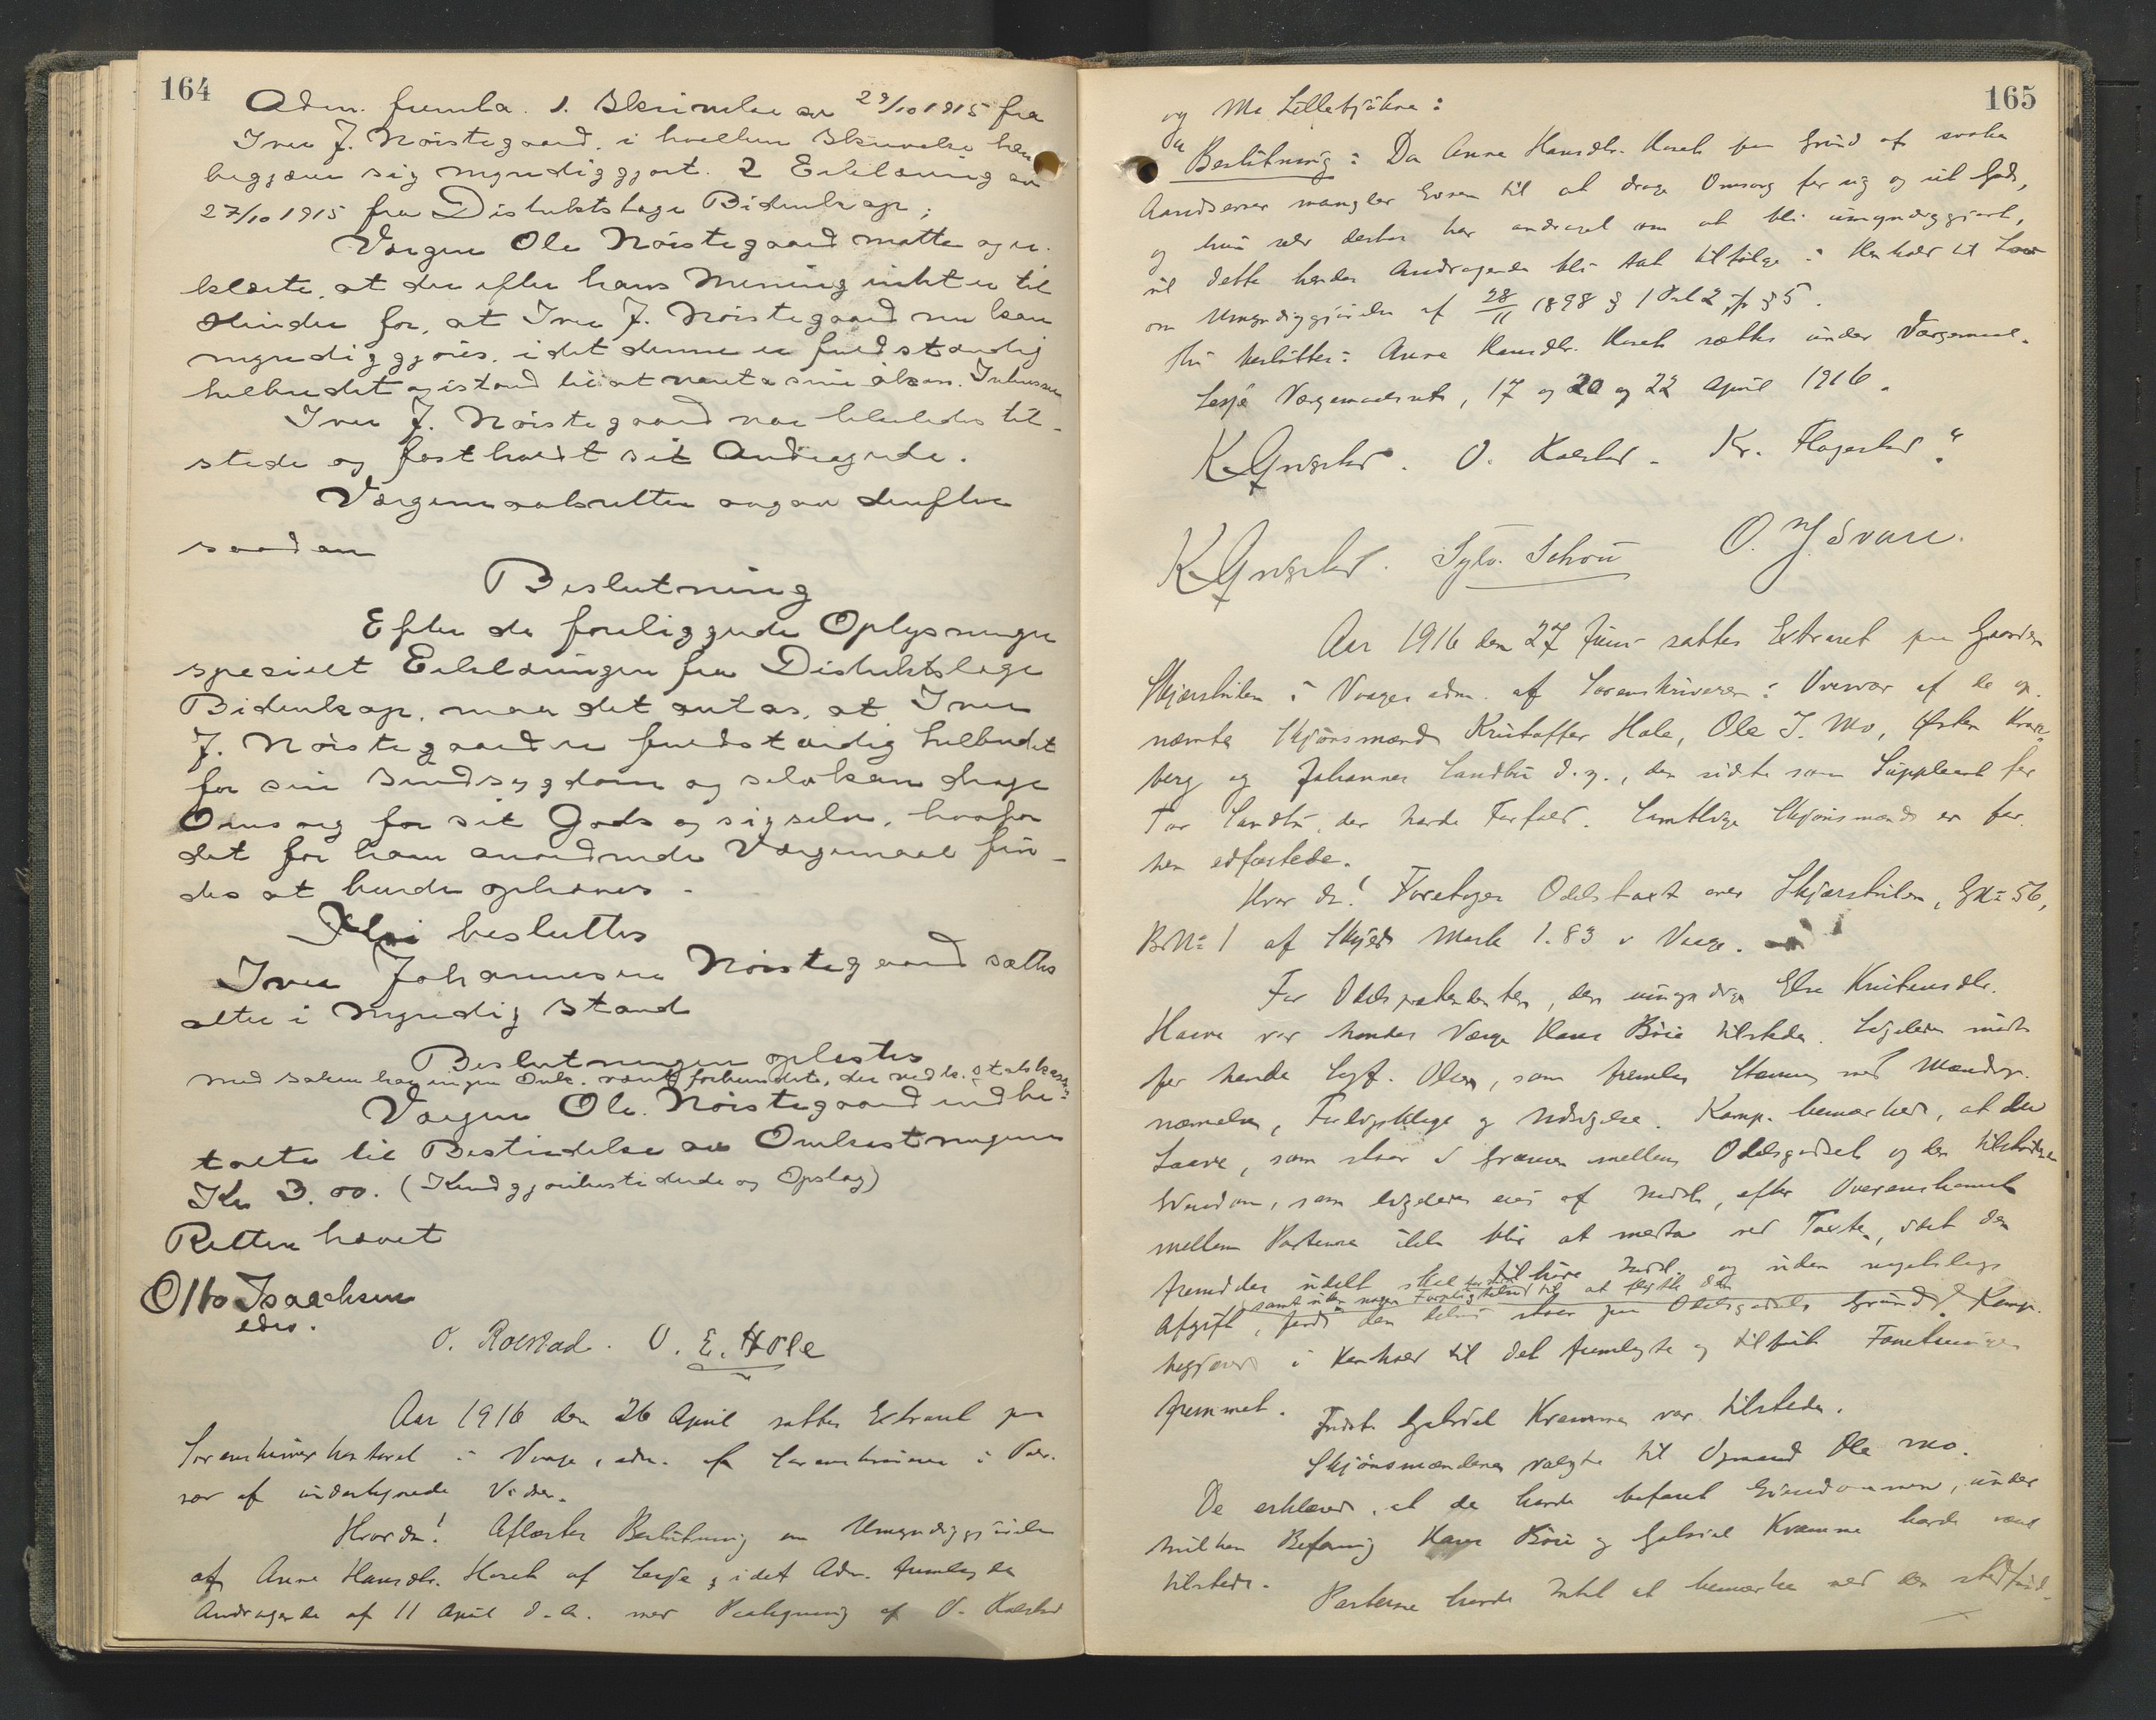 164
Adm. fremla. 1. Skrivelse av 29/10 1915 fra
Iver J. Nörstegaard, i hvilken Skrivelse han
begjærer sig myndiggjort. 2 Erklæring av
27/10 1915 fra Distriktslæge Bidenkap;
Værgen Ole Nörstegaard møtte og er-
klærte, at der efter hans Mening intet er til
Hinder for, at Iver J. Nörstegaard nu kan
myndiggjøres, idet denne er fuldstændig
helbredet og istand til at vareta sine økon. Interesser
Iver J. Nörstegaard var likeledes til-
stede og fastholdt sit Andragende.
Værgemaalsretten avgav derefter
saadan
Beslutning
Efter de foreliggende Oplysninger
specielt Erklæringen fra Distriktslæge
Bidenkap, maa det antas, at Iver
J. Nörstegaard er fuldstændig helbredet
for sin Sindsygdom og selv kan drage
Omsorg for sit Gods og sig selv, hvorfor
det for ham anordnede Værgemaal fin-
des at burde ophæves.
Thi besluttes
Iver Johannesen Nörstegaard sættes
atter i Myndig Stand
Beslutningen oplæstes
Med saken har ingen Omk. været forbundet, der ved k. Statskassen
Værgen Ole Nörstegaard indbe-
talte til Bestridelse av Omkostningerne
Kr 3.00. (Kundgjørelsestidende og Opslag)
Retten hævet
Otto Isaachsen
edsv.
O. Rolstad. O. E. Hole
Aar 1916 den 26 April sattes Extraret paa
Sorenskriverkontoret i Vaage, adm. af Sorenskriveren i Over-
vær af undertegnede Vidner.
Hvorda! Aflæstes Beslutning om Umyndiggjörelse
af Anne Hansdtr. Horch af Lesje, idet Adm. fremlagde
Andragende af 11 April d.a. med Paategning af O. Kolstad
165
og M. Lillebjåkne:
"Beslutning: Da Anne Hansdtr. Horch paa Grund af svake
Aandsevner mangler Evnen til at drage Omsorg for sig og sit Gods,
og hun selv derfor har andraget om at bli umyndiggjort,
vil dette hendes Andragende bli tat tilfölge i Henhold til Lov
om Umyndiggjörelse af 28/11 1898 § 1 Pkt 2, jfr § 5.
Thi besluttes: Anne Hansdtr. Horch sættes under Værgemaal.
Lesje Værgemaalsret, 17 og 20 og 22 April 1916.
K. Angelstad. O. Kolstad. Kr. Flagestad."
K. Angelstad. Sylv. Schou O. J. Svare.
Aar 1916 den 27 Juni sattes Extraret paa Gaarden
Skjærstulen i Vaage adm. af Sorenskriveren i Overvær af de op-
nævnte Skjönsmænd Kristoffer Hole, Ole J. Mo, Østen Kron-
berg og Johannes Sandbu d.y., den sidste som Suppleant for
Tor Sandbu, der havde Forfald. Samtlige Skjönsmænd er för
hen edfæstede.
Hvor da! Foretoges Odelstaxt over Skjærstulen, GNr. 56,
BrNr. 1 af Skyld Mark 1.83 i Vaage.
For Odelspretendenten, den umyndige Else Kristensdtr.
Haave var hendes Værge Hans Böie tilstede. Ligeledes mödte
for hende Sagf. Olsen, som fremla Stævning med Mændsop-
nævnelse, Forligsklage og Udsigelse. Komp. bemærkede, at den
Laave, som staar i Grænsen mellem Odelsgodset og den tilstödende
Eiendom, som ligeledes eies af Indst, efter Overenskomst
mellem Parterne ikke blir at medta ved Taxten, idet den
fremdeles udelt skal tilhöre Indst. og uden nogetslags
samt uden nogen Forpligtelse til at flytte den
Afgift, fordi den delvis staar paa Odelsgodsets Grund. Komp.
begjærede i Henhold til det fremlagte og tilförte Forretningen
fremmet.
Indst. Gabriel Kramme var tilstede.
Skjönsmændene valgte til Opmand Ole Mo.
De erklærede, at de havde befaret Eiendommen, under
hvilken Befaring Hans Böie og Gabriel Kramme havde været
tilstede.
Parterne havde Intet at bemærke ved den stedfund-